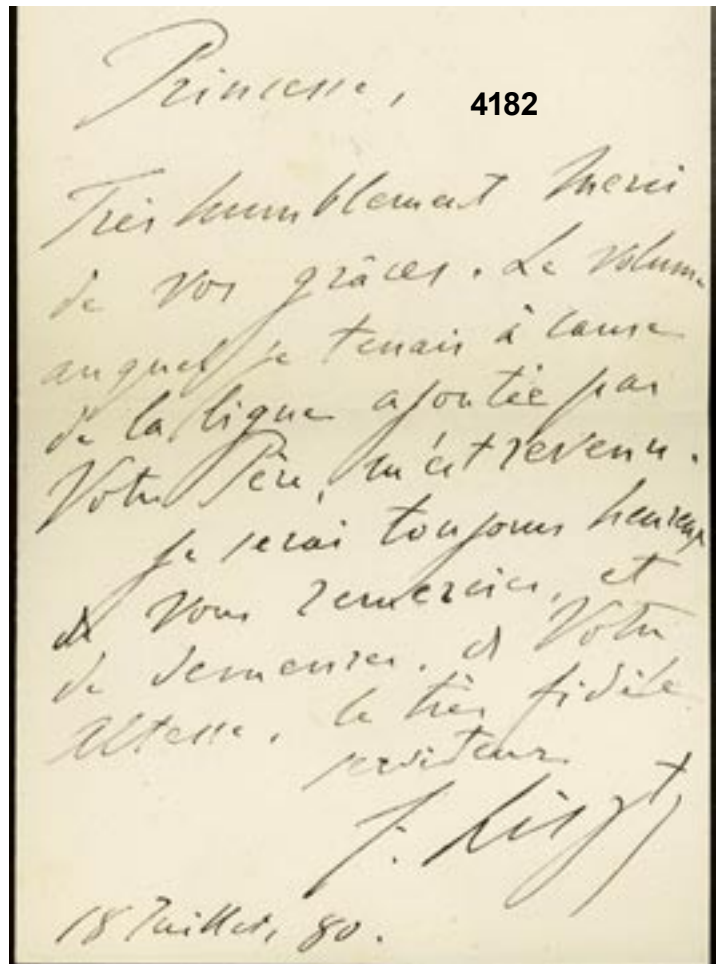 Princesse, 4182
Très humblement merci
de vos grâces. Le volume
auquel je tenais à cause
de la ligne ajoutée par
Votre Père, m'est revenu.
Je serai toujours heureux
de vous remercier, et
de demeurer, de Votre
Altesse, le très fidèle
serviteur
F. Liszt
18 Juillet, 80.